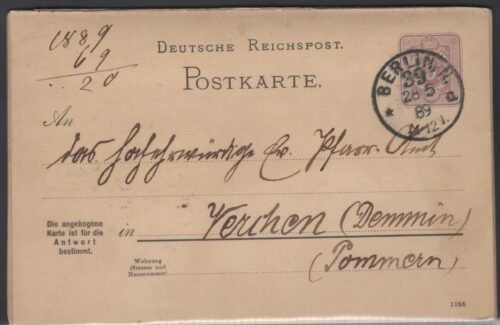 1889
69
20
DEUTSCHE REICHSPOST.
POSTKARTE.
BERLIN, N.
39
28 5
89
11-12V.
* d
An
das hochehrwürdige Ev. Pfarr-Amt
Die angebogene
Karte ist für die
Antwort
bestimmt.
in Verchen (Demmin)
Wohnung
(Strasse und
Hausnummer)
(Pommern)
1188